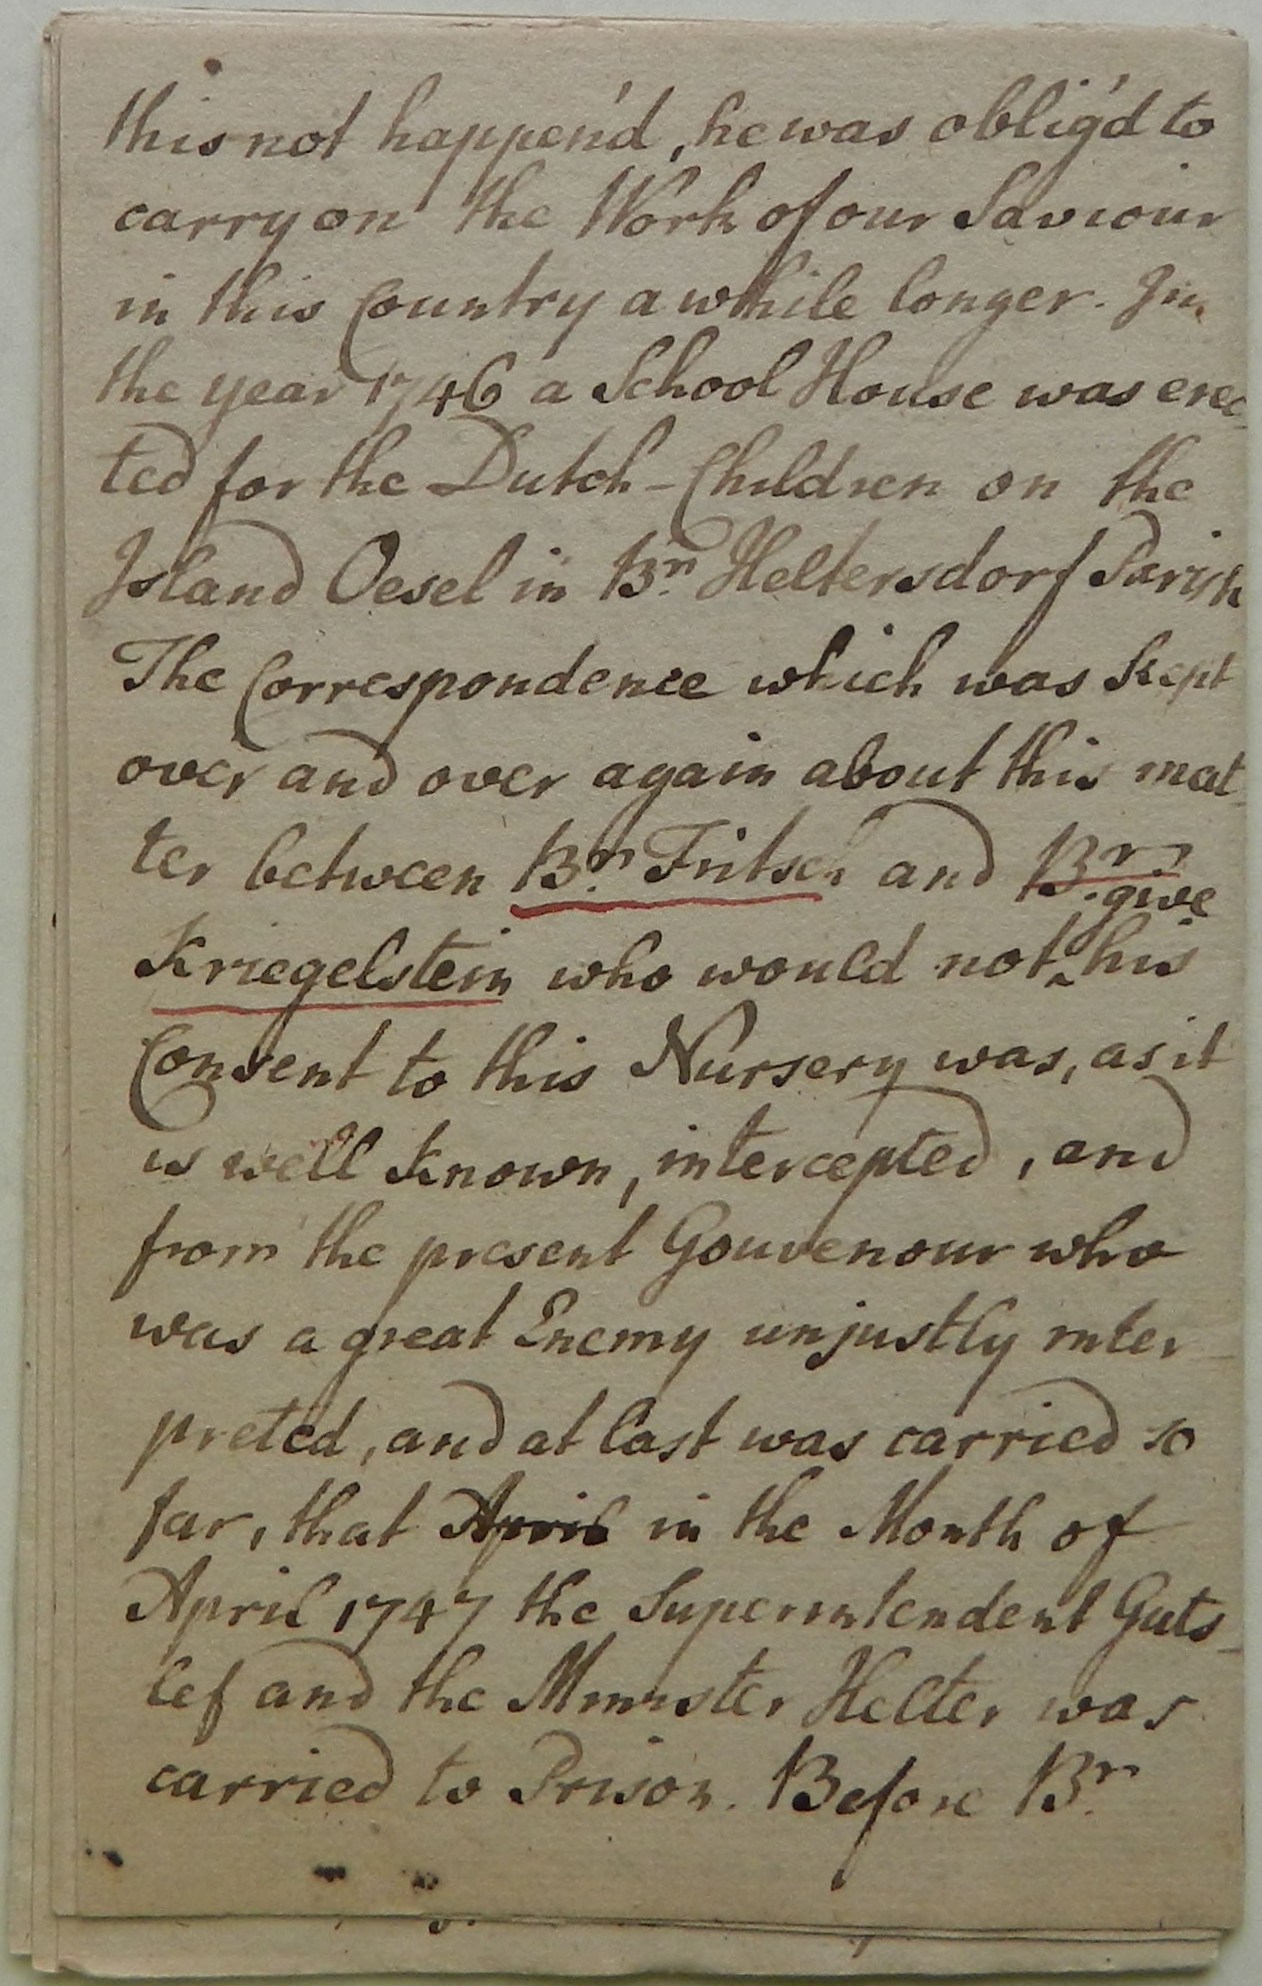 this not happen'd, he was oblig'd to
carry on the Work of our Saviour
in this Country a while longer. In
the year 1746 a School House was erec-
ted for the Dutch-Children on the
Island Oesel in Br. Heltersdorf Parish
The Correspondence which was kept
over and over again about this mat-
ter between Br. Fritsch and Br.
give
Kriegelstein who would not ^ his
Consent to this Nursery was, as it
is well known, intercepted, and
from the present Gouvenour who
was a great Enemy unjustly inter-
preted, and at last was carried so
far, that April in the Month of
April 1747 the Superintendent Guts-
lef and the Minister Helter was
carried to Prison. Before Br.